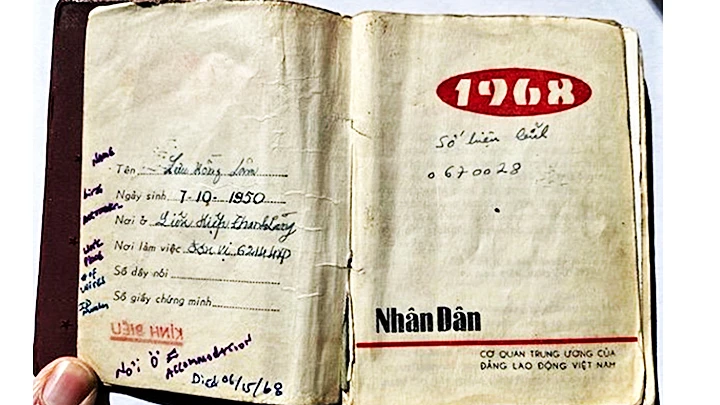 Name
Tên Lưu Hồng Lâm
birth
Ngày sinh 7-10-1950
Nơi ở Liên Hiệp
work place
Nơi làm việc Đơn vị
# of wires
Số dây nói
ID Number
Số giấy chứng minh
KÍNH BIẾU
NƠI Ở = ACCOMMODATION
Died 06/15/68
1968
Số hiên
0670028
Nhân Dân
CƠ QUAN TRUNG ƯƠNG CỦA
ĐẢNG LAO ĐỘNG VIỆT NAM